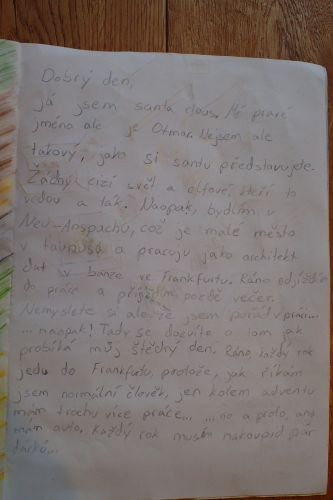 Dobrý den,
já jsem santa claus. Mé pravé
jméno ale je Otmar. Nejsem ale
takový, jako si santu představujete.
Žádný cizí svět a elfové, kteří to
vedou a tak. Naopak, bydlím v
Neu-Anspachu, což je malé město
v taunusu a pracuju jako architekt
dat v bance ve Frankfurtu. Ráno odjíždím
do práce a přijíždím pozdě večer.
Nemyslete si ale, že jsem pořád v práci...
...naopak! Tady se dozvíte o tom jak
probíhá můj štědrý den. Ráno, každý rok
jedu do Frankfurtu, protože, jak říkám
jsem normální člověk, jen kolem adventu
mám trochu více práce... ...no a proto, ano
mám auto. Každý rok musím nakoupit pár
dárků...